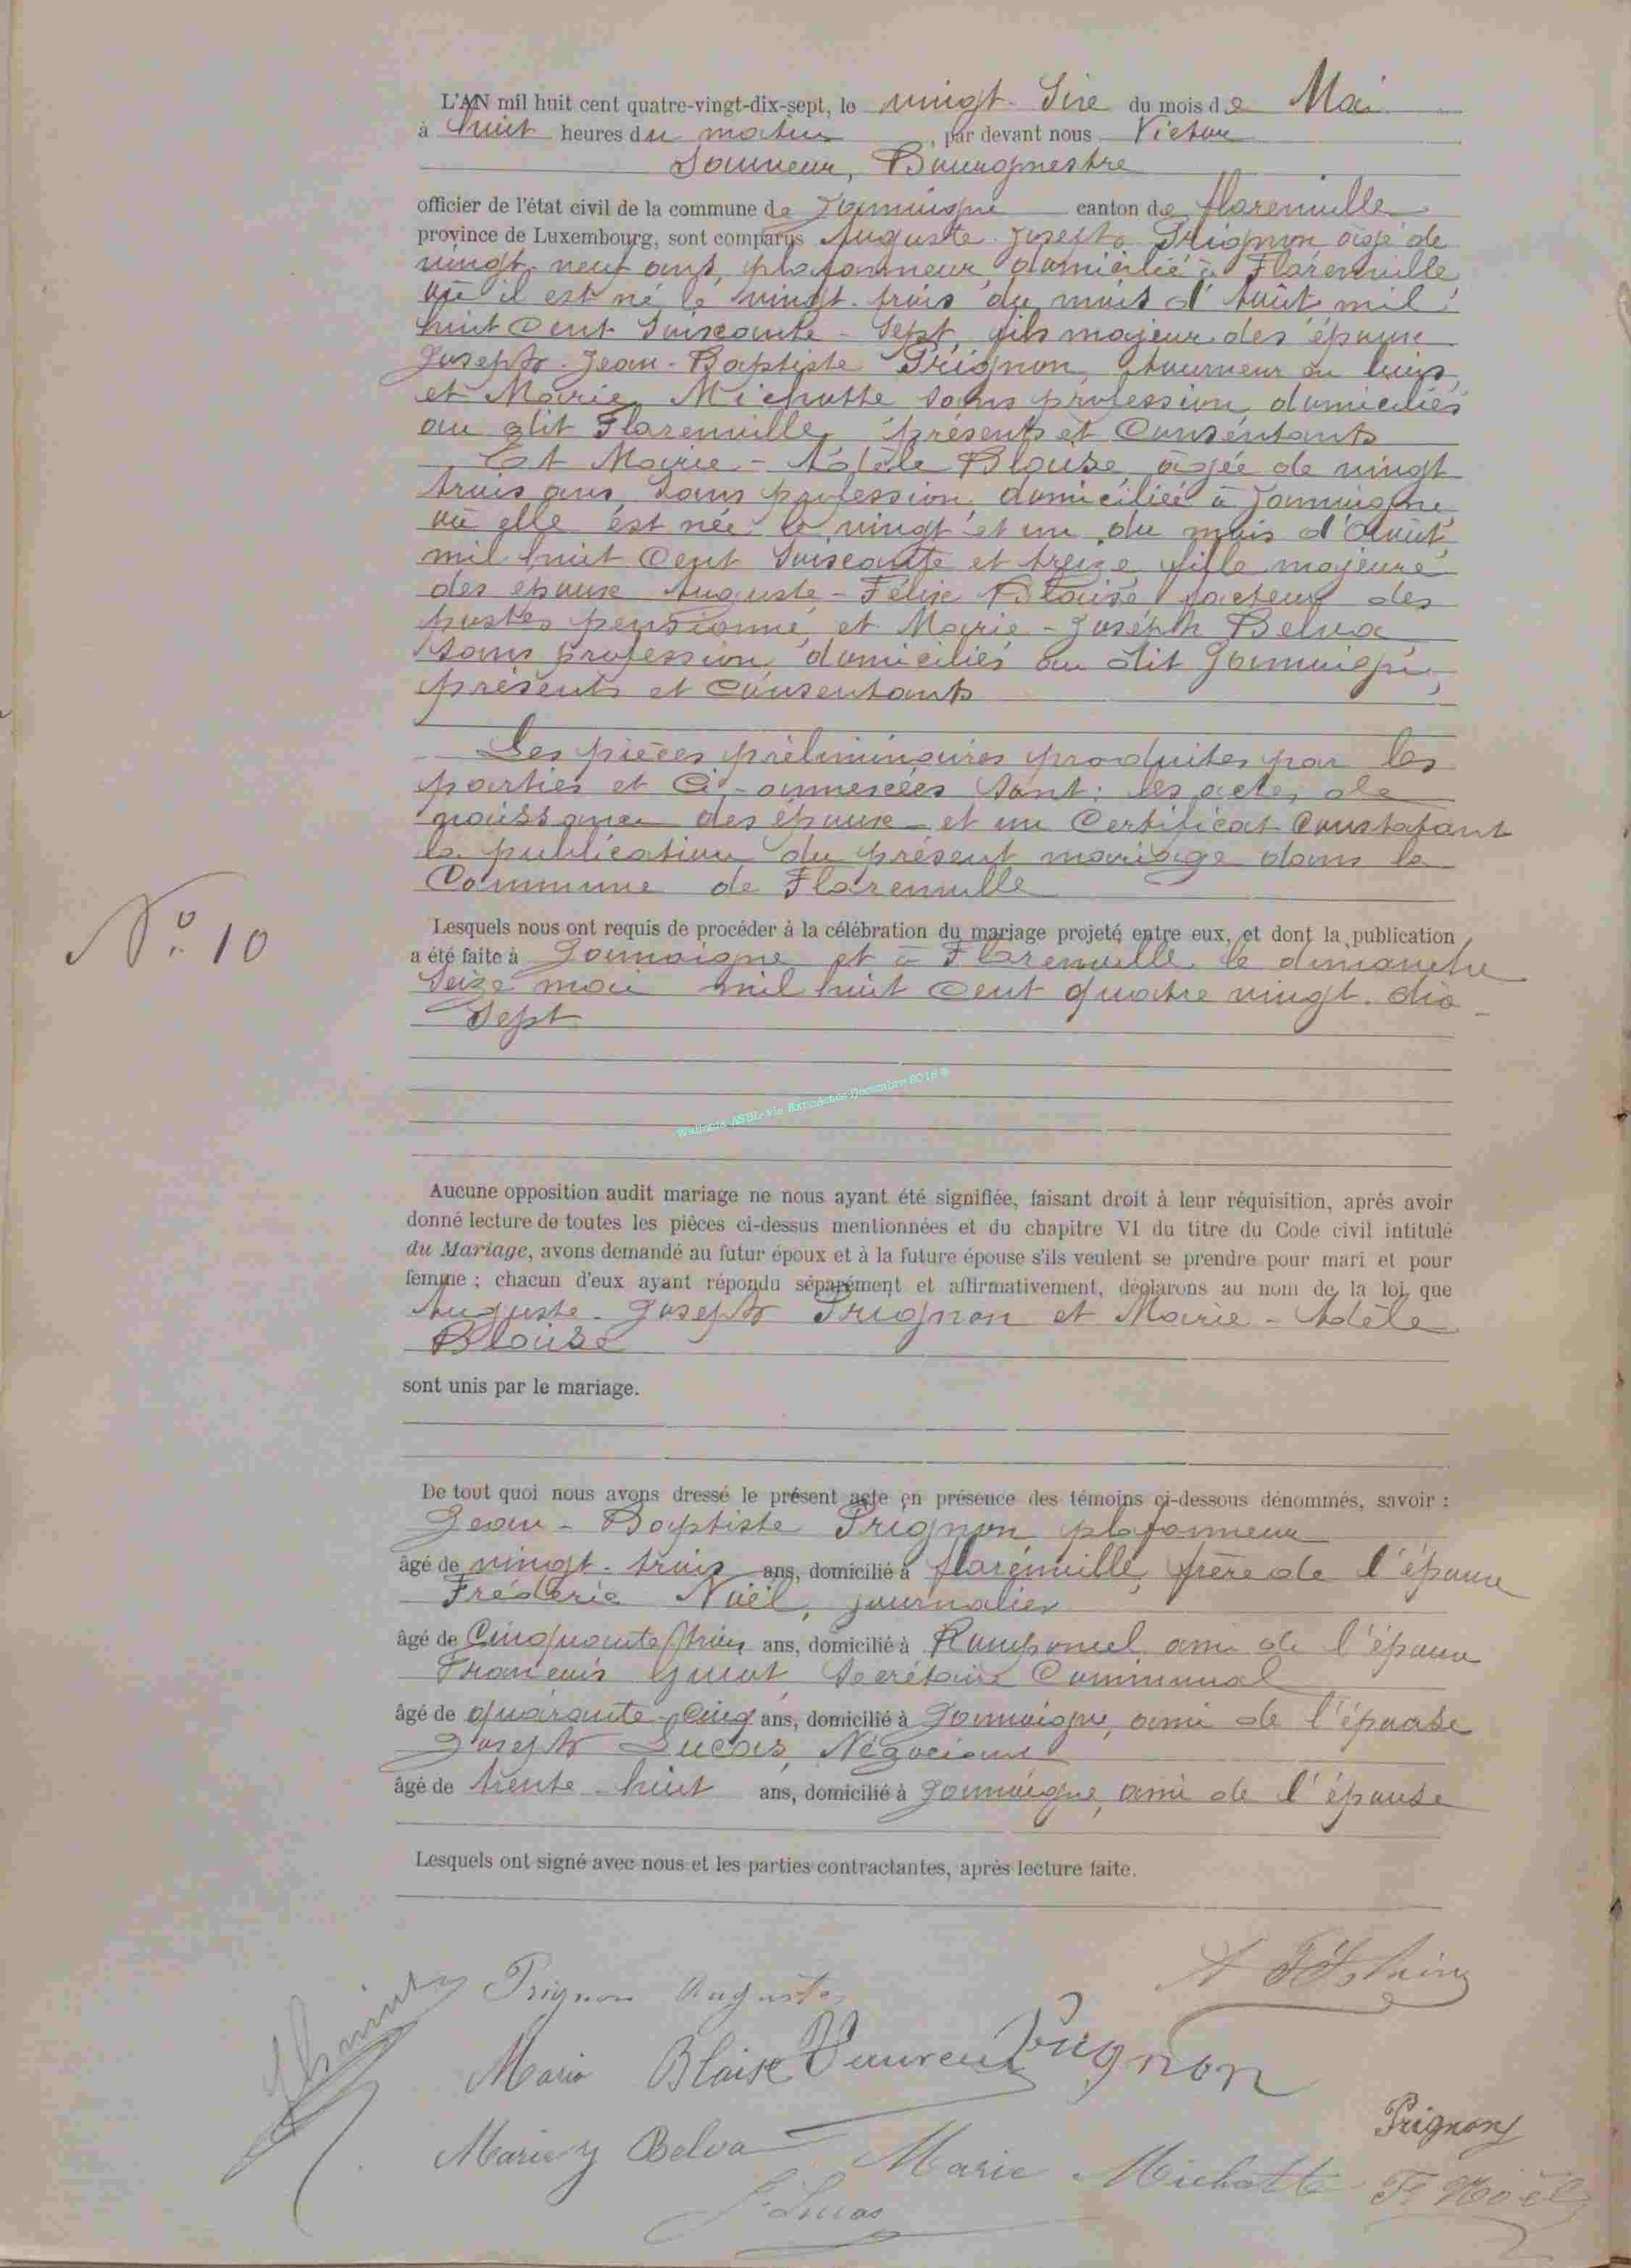 L'AN mil huit cent quatre-vingt-dix-sept, le vingt-six du mois de Mai
à huit heures du matin, par devant nous Victor
Bourgmestre
officier de l'état civil de la commune de Jamoigne canton de Florenville
province de Luxembourg, sont comparus Auguste Joseph Prignon âgé de
vingt-neuf ans, plafonneur, domicilié à Florenville
où il est né le vingt-trois du mois d'Août mil
huit cent soixante-sept, fils majeur des époux
Joseph-Jean-Baptiste Prignon, tourneur en bois,
et Marie Michotte sans profession, domiciliés
au dit Florenville, présents et consentants
Et Marie-Adèle Blaise, âgée de vingt
trois ans, sans profession, domiciliée à Jamoigne,
où elle est née le vingt et un du mois d'Août,
mil huit cent soixante et treize, fille majeure
des époux Auguste-Félix Blaise, facteur des
postes pensionné, et Marie-Joseph Belva
sans profession, domiciliés au dit Jamoigne,
présents et consentants
Les pièces préliminaires produites par les
parties et ci-annexées sont : les actes de
naissance des époux et un certificat constatant
la publication du présent mariage dans la
Commune de Florenville
N° 10
Lesquels nous ont requis de procéder à la célébration du mariage projeté entre eux, et dont la publication
a été faite à Jamoigne et à Florenville le dimanche
seize mai mil huit cent quatre vingt dix
sept
Wallonia ASBL via ExpoActes Decembre 2018 ©
Aucune opposition audit mariage ne nous ayant été signifiée, faisant droit à leur réquisition, après avoir
donné lecture de toutes les pièces ci-dessus mentionnées et du chapitre VI du titre du Code civil intitulé
du Mariage, avons demandé au futur époux et à la future épouse s'ils veulent se prendre pour mari et pour
femme ; chacun d'eux ayant répondu séparément et affirmativement, déclarons au nom de la loi, que
Auguste-Joseph Prignon et Marie-Adèle
Blaise
sont unis par le mariage.
De tout quoi nous avons dressé le présent acte en présence des témoins ci-dessous dénommés, savoir :
Jean-Baptiste Prignon plafonneur
âgé de vingt-trois ans, domicilié à Florenville, frère de l'époux
Fréderic Noël, journalier
âgé de Cinquante trois ans, domicilié à Ramponcel ami de l'époux
François secrétaire Communal
âgé de quarante-cinq ans, domicilié à Jamoigne, ami de l'épouse
Joseph Lucas, Négociant
âgé de trente-huit ans, domicilié à Jamoigne, ami de l'épouse
Lesquels ont signé avec nous et les parties contractantes, après lecture faite.
Prignon Auguste
Marie Blaise Prignon
Prignon
Marie J Belva Marie Michotte F Noël
J. Lucas